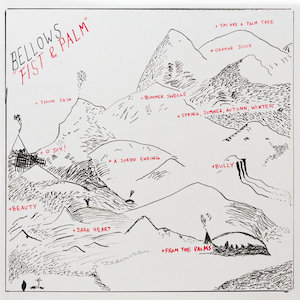 BELLOWS
"FIST & PALM"
• YOU ARE A PALM TREE
• ORANGE JUICE
• THICK SKIN
• BUMMER SWELLS
• SPRING, SUMMER, AUTUMN, WINTER
• O JOY!
• A SORDO ENDING
• BULLY
• BEAUTY
• DARK HEART
• FROM THE PALMS